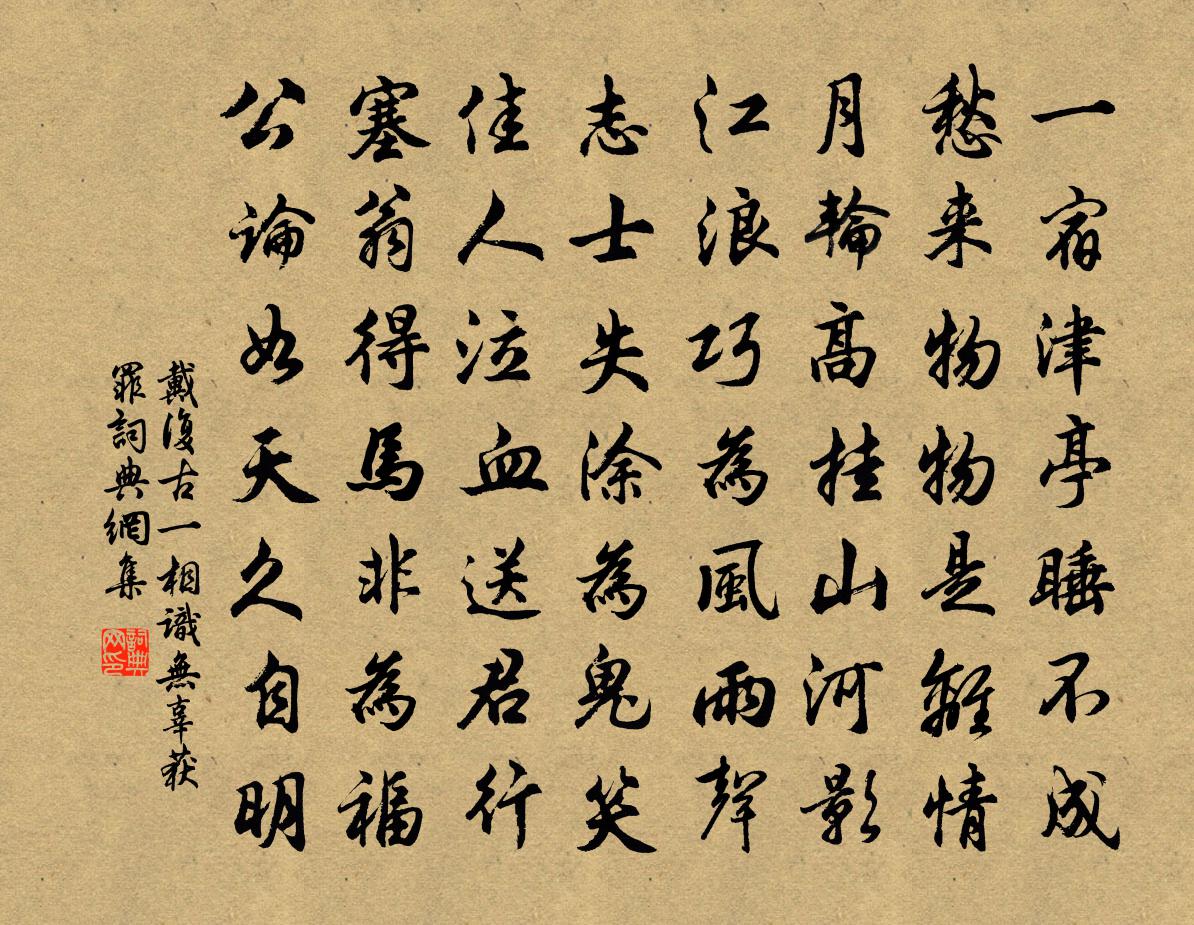 一宿津亭睡不成
愁来物物是離情
月輪高挂山河影
江浪巧為風雨聲
志士失塗為鬼笑
佳人泣血送君行
塞翁得馬非為福
公論如天久自明
戴復古一相識無辜获
罪詞典網集
詞典
网印